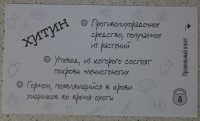 ХИТИН
Противолихорадочное
средство, получаемое
из растений
Углевод, из которого состоят
покровы членистоногих
Гормон, появляющийся в крови
хищников во время охоты
Правильный ответ